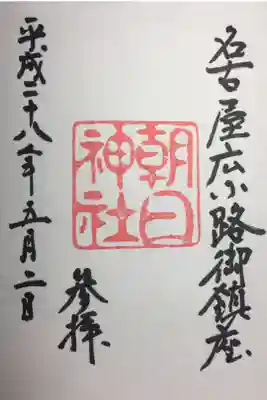 名古屋広小路御鎮座
朝日
神社
参拝
平成二十八年五月二日